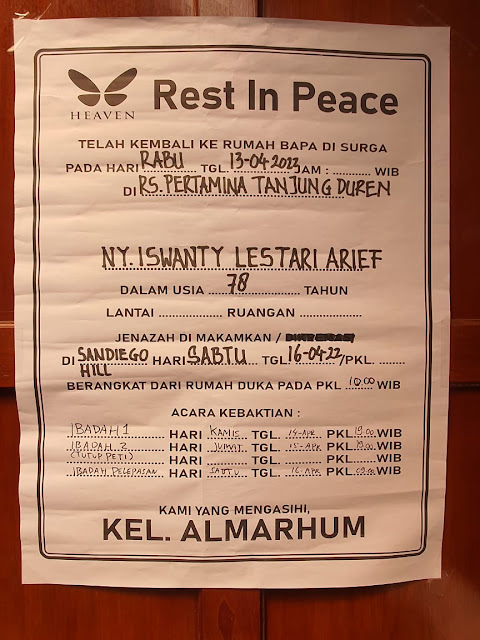 HEAVEN
Rest In Peace
TELAH KEMBALI KE RUMAH BAPA DI SURGA
PADA HARI RABU TGL. 13-04-2022 JAM : ............ WIB
DI RS. PERTAMINA TANJUNG DUREN
NY. ISWANTY LESTARI ARIEF
DALAM USIA 78 TAHUN
LANTAI .............. RUANGAN ..................
JENAZAH DI MAKAMKAN /
DI SANDIEGO HILL HARI SABTU TGL. 16-04-22 /PKL. ......
BERANGKAT DARI RUMAH DUKA PADA PKL 10.00 WIB
ACARA KEBAKTIAN :
IBADAH 1 HARI KAMIS TGL. 14-APR PKL 19.00 WIB
IBADAH 2 HARI JUMAT TGL. 15-APR PKL 19.00 WIB
(TUTUP PETI) HARI ............ TGL. ............ PKL ...... WIB
IBADAH PELEPASAN HARI SABTU TGL. 16 APR PKL 09.00 WIB
KAMI YANG MENGASIHI,
KEL. ALMARHUM